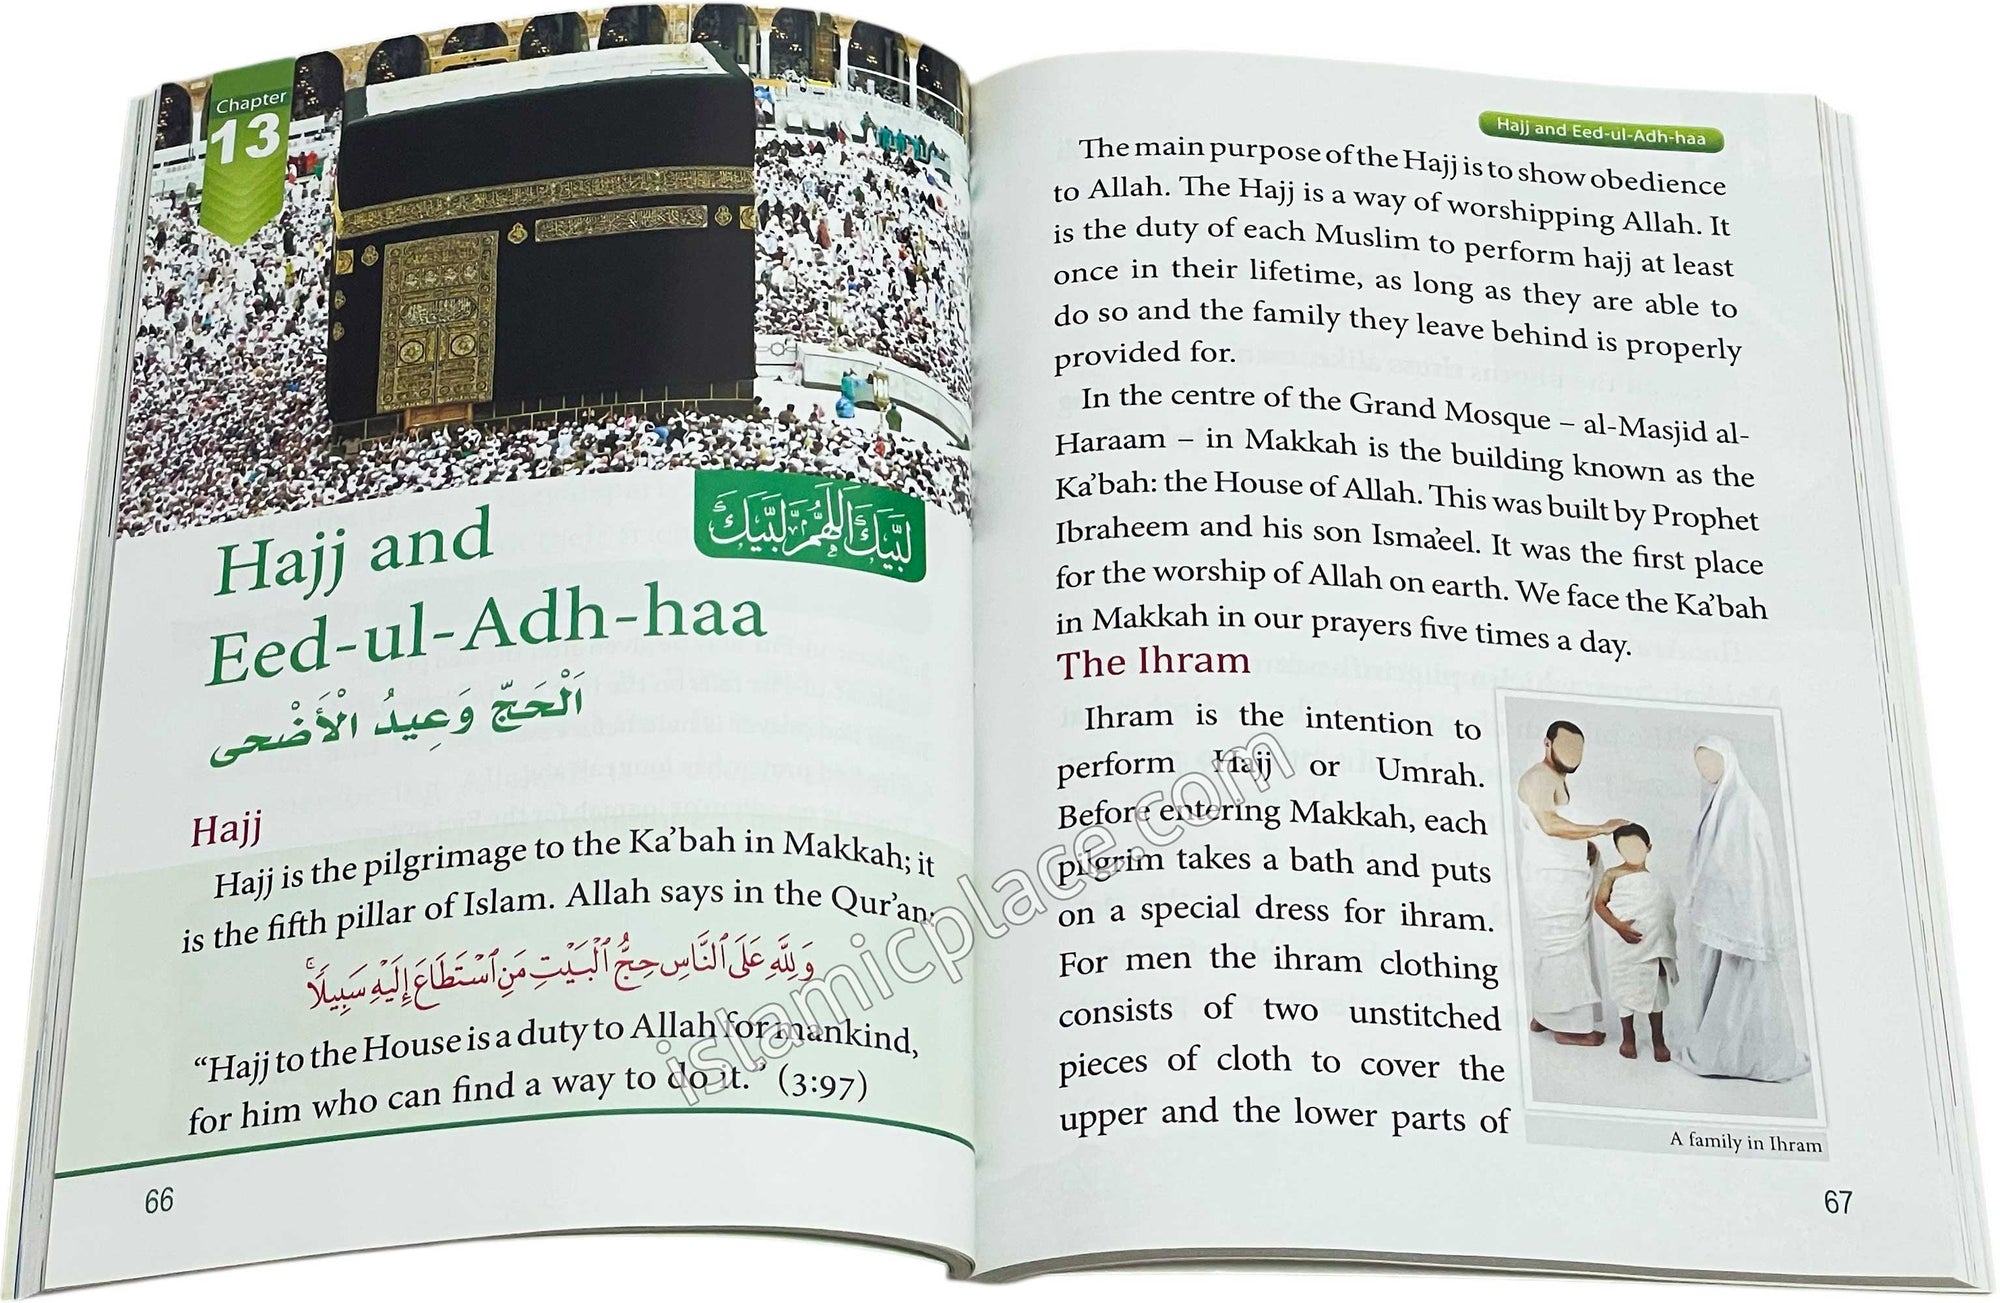 Chapter
13
لَبَّيْكَ اللَّهُمَّ لَبَّيْكَ
Hajj and
Eed-ul-Adh-haa
اَلْحَجّ وَعِيدُ الْأَضْحى
Hajj
Hajj is the pilgrimage to the Ka’bah in Makkah; it
is the fifth pillar of Islam. Allah says in the Qur’an:
وَلِلَّهِ عَلَى ٱلنَّاسِ حِجُّ ٱلْبَيْتِ مَنِ ٱسْتَطَاعَ إِلَيْهِ سَبِيلًا ۚ
“Hajj to the House is a duty to Allah for mankind,
for him who can find a way to do it.” (3:97)
66
Hajj and Eed-ul-Adh-haa
The main purpose of the Hajj is to show obedience
to Allah. The Hajj is a way of worshipping Allah. It
is the duty of each Muslim to perform hajj at least
once in their lifetime, as long as they are able to
do so and the family they leave behind is properly
provided for.
In the centre of the Grand Mosque – al-Masjid al-
Haraam – in Makkah is the building known as the
Ka’bah: the House of Allah. This was built by Prophet
Ibraheem and his son Isma’eel. It was the first place
for the worship of Allah on earth. We face the Ka’bah
in Makkah in our prayers five times a day.
The Ihram
Ihram is the intention to
perform Hajj or Umrah.
Before entering Makkah, each
pilgrim takes a bath and puts
on a special dress for ihram.
For men the ihram clothing
consists of two unstitched
pieces of cloth to cover the
upper and the lower parts of
A family in Ihram
67
islamicplace.com